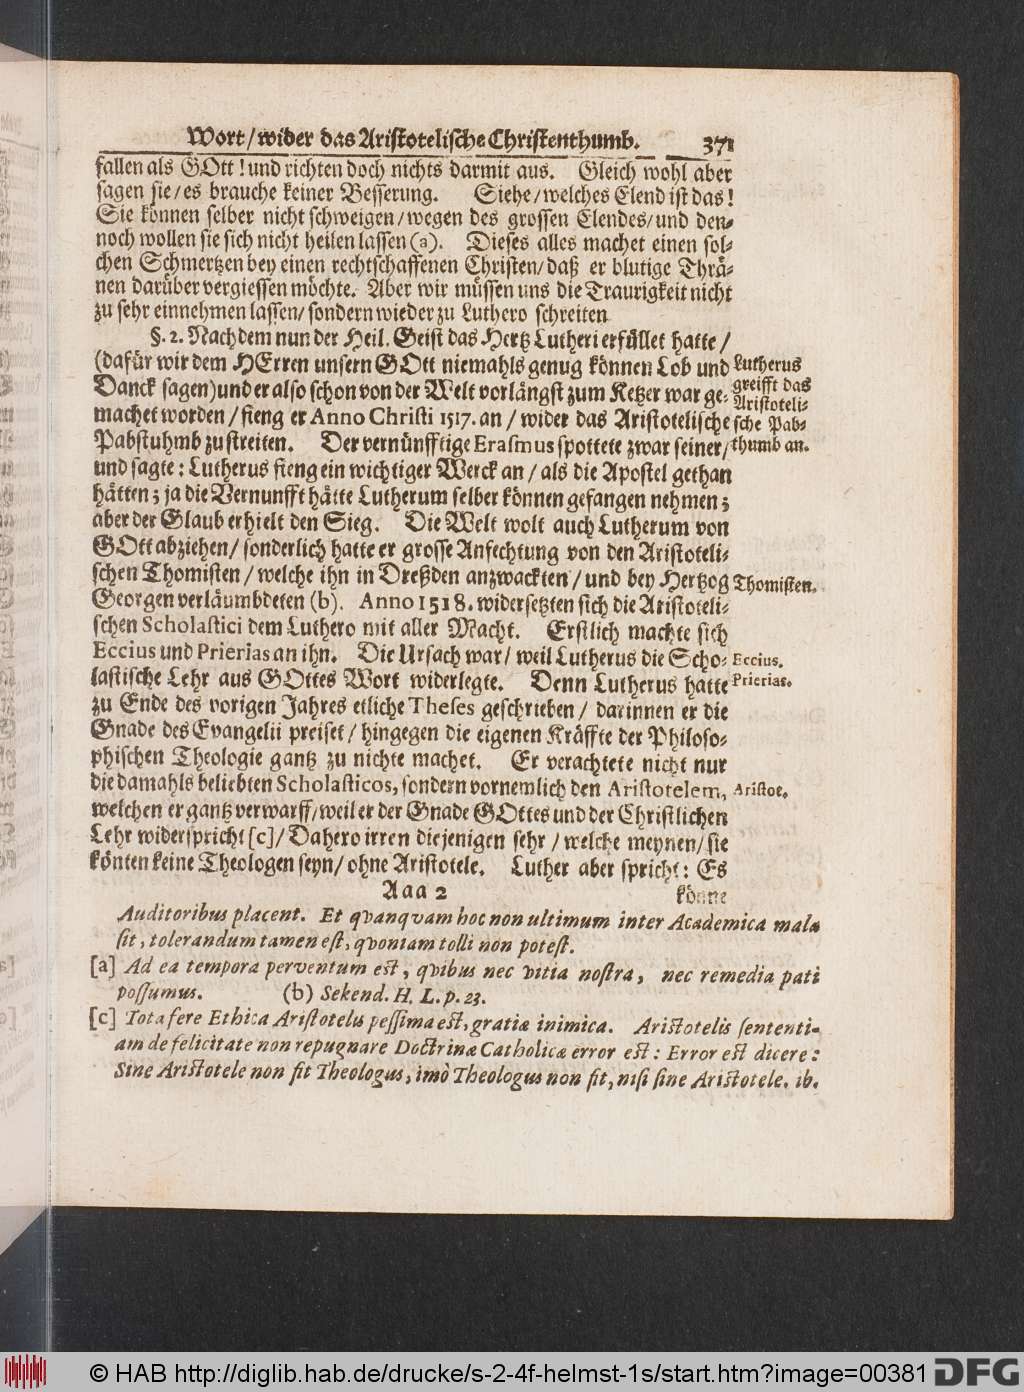 Wort / wider das Aristotelische Christenthumb. 371
fallen als GOtt! und richten doch nichts darmit aus. Gleich wohl aber
sagen sie / es brauche keiner Besserung. Siehe / welches Elend ist das!
Sie können selber nicht schweigen / wegen des grossen Elendes / und den-
noch wollen sie sich nicht heilen lassen (a). Dieses alles machet einen sol-
chen Schmertzen bey einen rechtschaffenen Christen / daß er blutige Thrä-
nen darüber vergiessen möchte. Aber wir müssen uns die Traurigkeit nicht
zu sehr einnehmen lassen / sondern wieder zu Luthero schreiten
§. 2. Nachdem nun der Heil. Geist das Hertz Lutheri erfüllet hatte /
(dafür wir dem HErren unsern GOtt niemahls genug können Lob und
Danck sagen) und er also schon von der Welt vorlängst zum Ketzer war ge-
machet worden / fieng er Anno Christi 1517. an / wider das Aristotelische
Pabstuhmb zu streiten. Der vernünfftige Erasmus spottete zwar seiner /
und sagte: Lutherus fieng ein wichtiger Werck an / als die Apostel gethan
hätten; ja die Vernunfft hätte Lutherum selber können gefangen nehmen;
aber der Glaub erhielt den Sieg. Die Welt wolt auch Lutherum von
GOtt abziehen / sonderlich hatte er grosse Anfechtung von den Aristoteli-
schen Thomisten / welche ihn in Dreßden anzwackten / und bey Hertzog
Georgen verläumbdeten (b). Anno 1518. widersetzten sich die Aristoteli-
schen Scholastici dem Luthero mit aller Macht. Erstlich machte sich
Eccius und Prierias an ihn. Die Ursach war / weil Lutherus die Scho-
lastische Lehr aus GOttes Wort widerlegte. Denn Lutherus hatte
zu Ende des vorigen Jahres etliche Theses geschrieben / darinnen er die
Gnade des Evangelii preiset / hingegen die eigenen Kräffte der Philoso-
phischen Theologie gantz zu nichte machet. Er verachtete nicht nur
die damahls beliebten Scholasticos, sondern vornemlich den Aristotelem,
welchen er gantz verwarff / weil er der Gnade GOttes und der Christlichen
Lehr widerspricht [c] / Dahero irren diejenigen sehr / welche meynen / sie
könten keine Theologen seyn / ohne Aristotele. Luther aber spricht: Es
Aaa 2 könne
Lutherus
greifft das
Aristoteli-
sche Pab-
thumb an.
Thomisten.
Eccius.
Prierias.
Aristot.
Auditoribus placent. Et qvanqvam hoc non ultimum inter Academica mala
sit, tolerandum tamen est, qvoniam tolli non potest.
[a] Ad ea tempora perventum est, qvibus nec vitia nostra, nec remedia pati
possumus. (b) Sekend. H. L. p. 23.
[c] Tota fere Ethica Aristotelis pessima est, gratiæ inimica. Aristotelis sententi-
am de felicitate non repugnare Doctrinæ Catholicæ error est: Error est dicere:
Sine Aristotele non fit Theologus, imò Theologus non fit, nisi sine Aristotele. ib.
© HAB http://diglib.hab.de/drucke/s-2-4f-helmst-1s/start.htm?image=00381
DFG